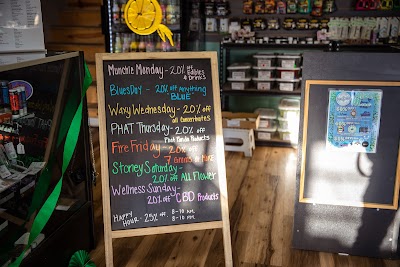 Munchie Monday - 20% off Edibles & Drinks
BluesDay - 20% off Anything "BLUE"
Waxy Wednesday - 20% off all Concentrates
PHAT Thursday - 20% off Phat Panda Products
Fire Friday - 20% off 7 Grams or More
Stoney Saturday -
20% off All Flower
Wellness Sunday -
20% off CBD Products
HAPPY HOUR - 25% off: 8-10 AM
8-10 PM